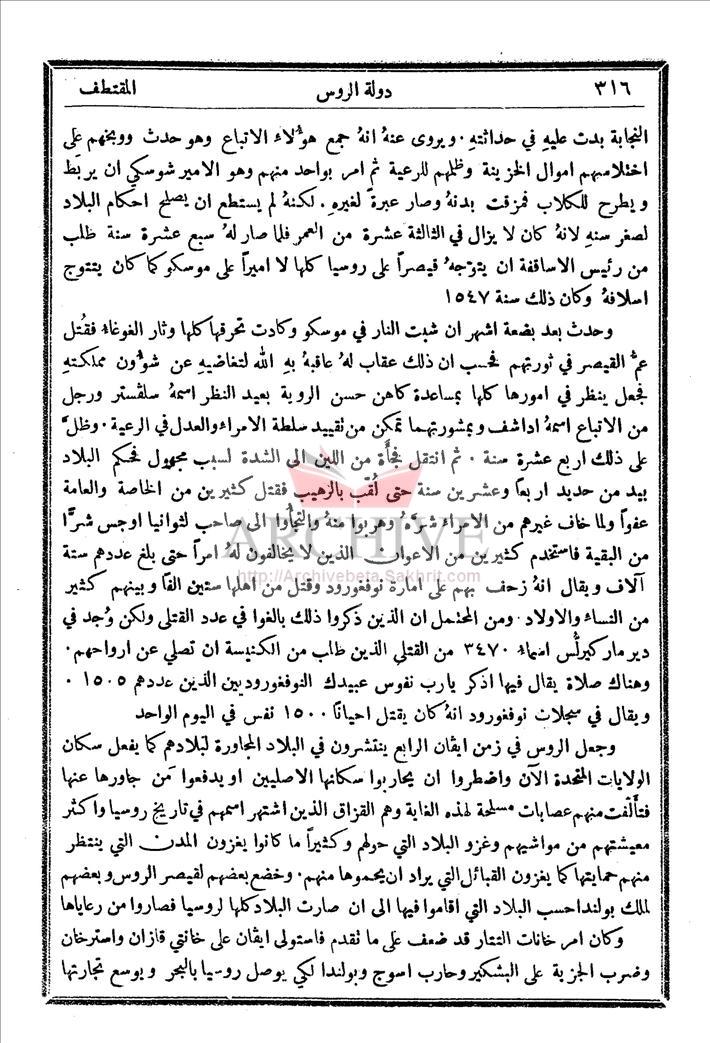 ٣١٦ دولة الروس المقتطف
النجابة بدت عليهِ في حداثتهِ . ويروى عنهُ انهُ جمع هؤلاء الاتباع وهو حدث ووبخهم على
اختلاسهم اموال الخزينة وظلمهم للرعية ثم امر بواحد منهم وهو الامير شوسكي ان يربط
ويطرح للكلاب فمزقت بدنهُ وصار عبرةً لغيرهِ . لكنهُ لم يستطع ان يصلح احكام البلاد
لصغر سنهِ لانهُ كان لا يزال في الثالثة عشرة من العمر فلما صار لهُ سبع عشرة سنة طلب
من رئيس الاساقفة ان يتوّجهُ قيصراً على روسيا كلها لا اميراً على موسكو كما كان يتتوج
اسلافهُ وكان ذلك سنة ١٥٤٧
وحدث بعد بضعة اشهر ان شبت النار في موسكو وكادت تحرقها كلها وثار الغوغاء فقُتل
عمُّ القيصر في ثورتهم فحسب ان ذلك عقاب لهُ عاقبهُ بهِ الله لتغاضيهِ عن شؤون مملكتهِ
فجعل ينظر في امورها كلها بمساعدة كاهن حسن الروية بعيد النظر اسمهُ سلڤستر ورجل
من الاتباع اسمهُ اداشف وبمشورتهما تمكن من نقييد سلطة الامراء والعدل في الرعية . وظلَّ
على ذلك اربع عشرة سنة . ثم انتقل فجأَة من اللين الى الشدة لسبب مجهول فحكم البلاد
بيد من حديد اربعاً وعشرين سنة حتى لُقب بالرهيب فقتل كثيرين من الخاصة والعامة
عفواً ولما خاف غيرهم من الامراء شرّهُ وهربوا منهُ والتجأُوا الى صاحب لثوانيا اوجس شرًّا
من البقية فاستخدم كثيرين من الاعوان الذين لا يخالفون لهُ امراً حتى بلغ عددهم ستة
آلاف ويقال انهُ زحف بهم على امارة نوفغورود وقتل من اهلها ستين الفًا وبينهم كثير
من النساء والاولاد . ومن المحتمل ان الذين ذكروا ذلك بالغوا في عدد القتلى ولكن وُجد في
دير مار كيرلُّس اسماء ٣٤٧٠ من القتلى الذين طلب من الكنيسة ان تصلي عن ارواحهم .
وهناك صلاة يقال فيها اذكر يارب نفوس عبيدك النوفغوروديين الذين عددهم ١٥٠٥ .
ويقال في سجلات نوفغورود انهُ كان يقتل احيانًا ١٥٠٠ نفس في اليوم الواحد
وجعل الروس في زمن ايڤان الرابع ينتشرون في البلاد المجاورة لبلادهم كما يفعل سكان
الولايات المتحدة الآن واضطروا ان يحاربوا سكانها الاصليين او يدفعوا مَن جاورها عنها
فتأَلّفت منهم عصابات مسلحة لهذه الغاية وهم القزاق الذين اشتهر اسمهم في تاريخ روسيا واكثر
معيشتهم من مواشيهم وغزو البلاد التي حولهم وكثيراً ما كانوا يغزون المدن التي ينتظر
منهم حمايتها كما يغزون القبائل التي يراد ان يحموها منهم . وخضع بعضهم لقيصر الروس وبعضهم
لملك بولندا حسب البلاد التي اقاموا فيها الى ان صارت البلاد كلها لروسيا فصاروا من رعاياها
وكان امر خانات التتار قد ضعف على ما نقدم فاستولى ايڤان على خانتي قازان واسترخان
وضرب الجزية على البشكير وحارب اسوج وبولندا لكي يوصل روسيا بالبحر ويوسع تجارتها
ARCHIVE
http://Archivebeta.Sakhrit.com